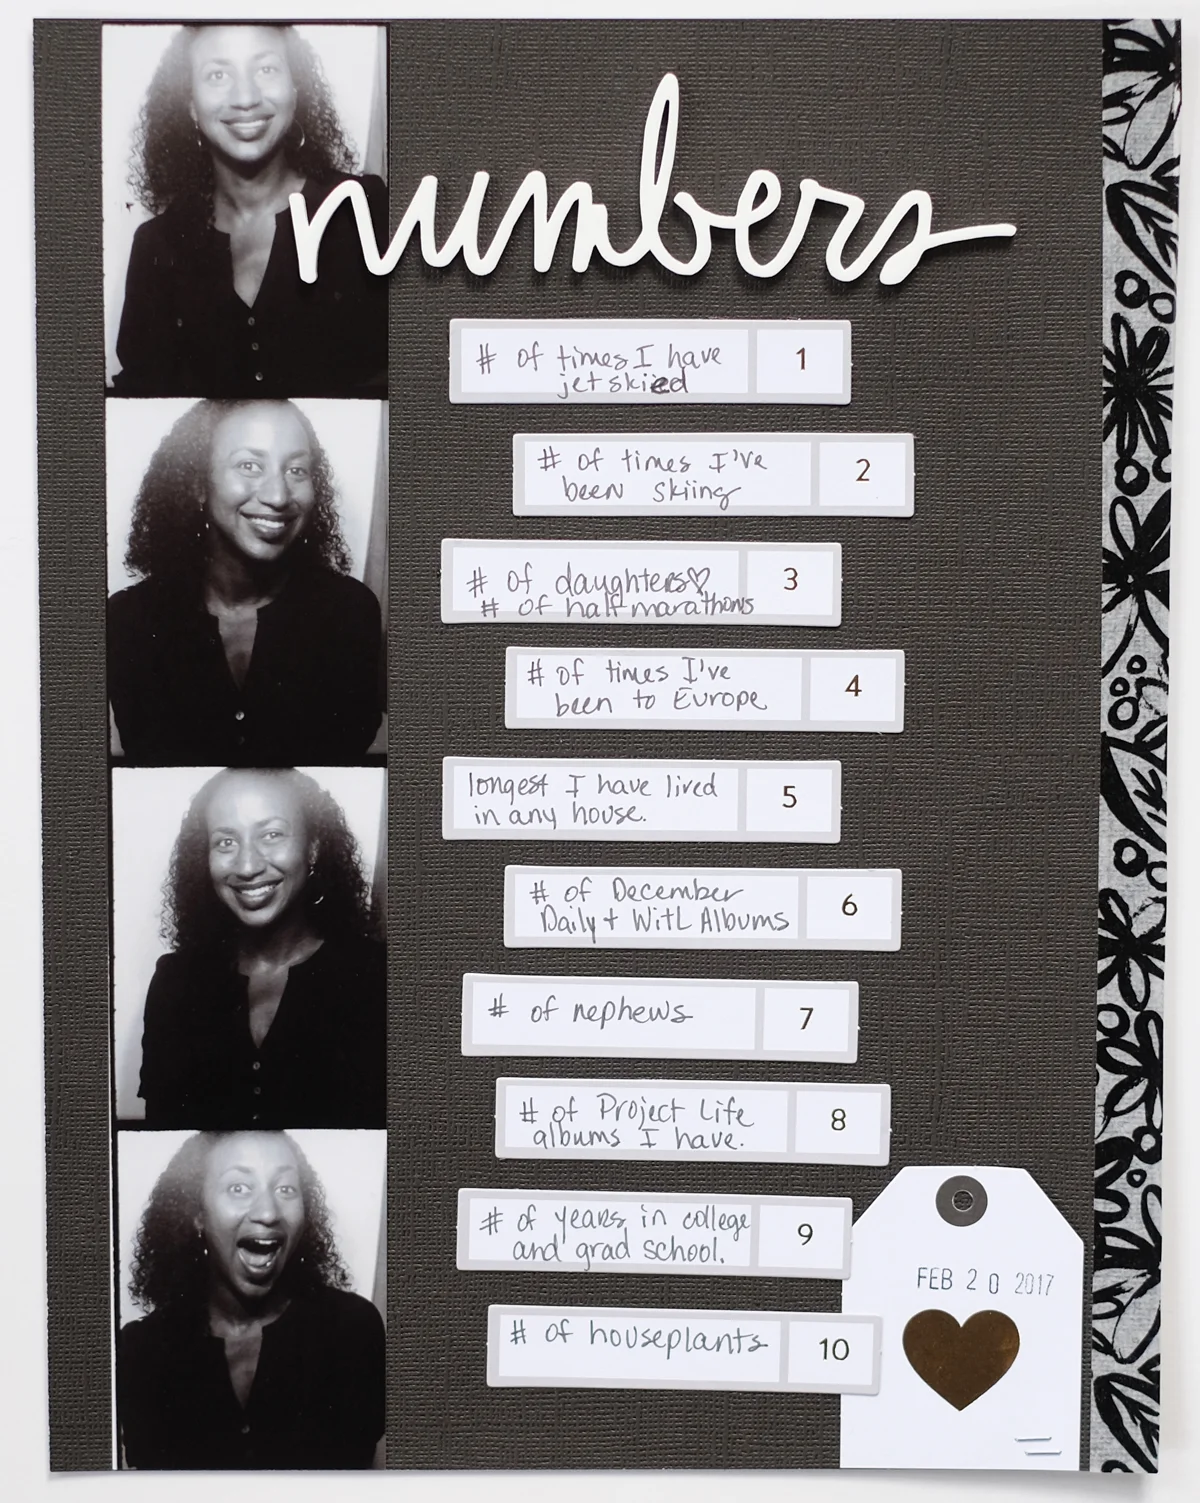 numbers
# of times I have
jet skied
1
# of times I've
been skiing
2
# of daughters♡
# of half marathons
3
# of times I've
been to Europe
4
longest I have lived
in any house.
5
# of December
Daily + WITL Albums
6
# of nephews
7
# of Project Life
albums I have.
8
# of years in college
and grad school.
9
# of houseplants
10
FEB 20 2017